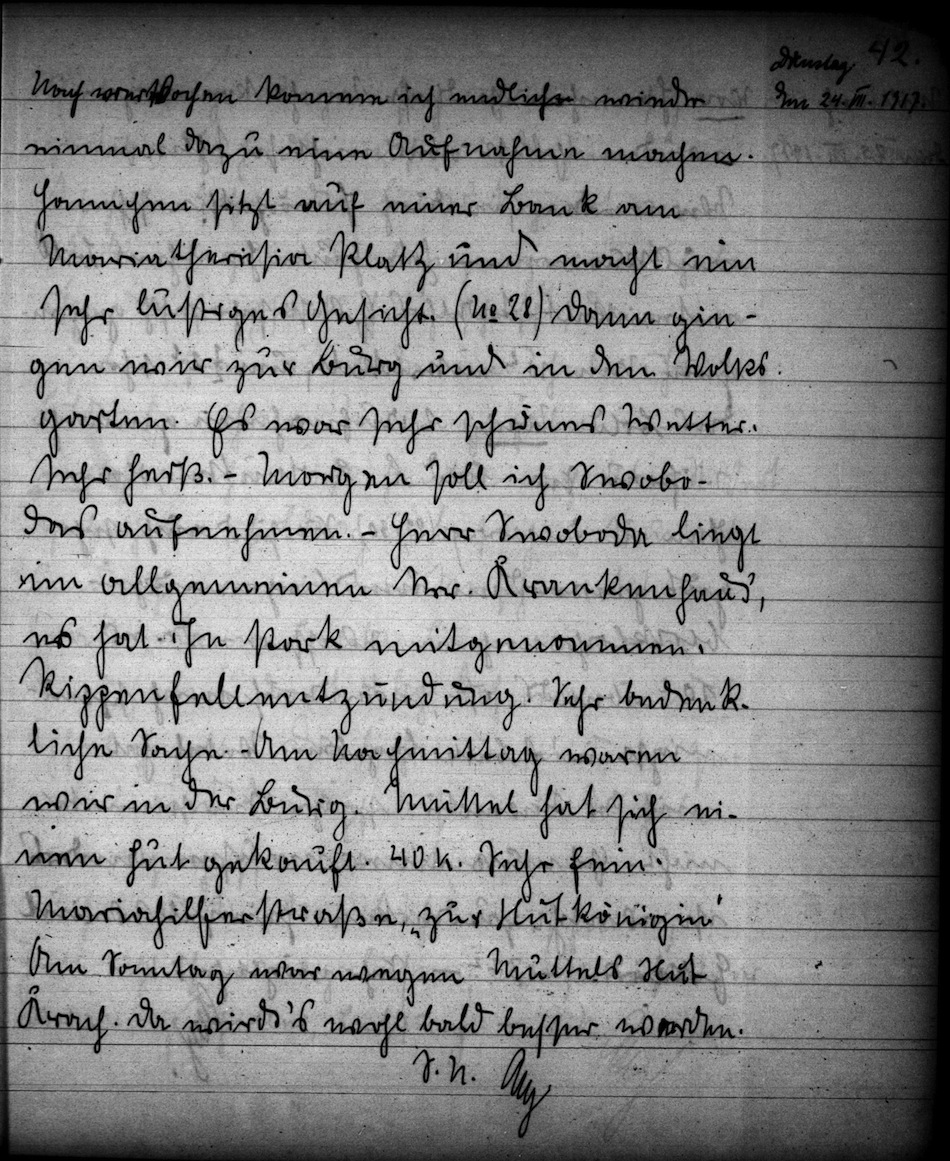 42.
Dienstag
den 24. III. 1917.
Nach vier Wochen komme ich endlich wieder
einmal dazu eine Aufnahme machen.
Hannchen sitzt auf einer Bank am
Maria Theresia Platz und macht ein
sehr lustiges Gesicht. (No 28) Dann gin-
gen wir zur Burg und in den Volks
garten. Es war sehr schönes Wetter.
Sehr heiß. - Morgen soll ich Swobo-
das aufnehmen. - Herr Swoboda liegt
im allgemeinen Krankenhaus,
es hat ihn stark mitgenommen.
Rippenfellentzündung. Sehr bedenk-
liche Sache. - Am Nachmittag waren
wir in der Burg. Muttel hat sich ei-
nen Hut gekauft. 40 K. Sehr fein.
Mariahilferstraße, „zur Hutkönigin"
Am Sonntag war wegen Muttels Hut
Krach. Da wirds's wohl bald besser werden.